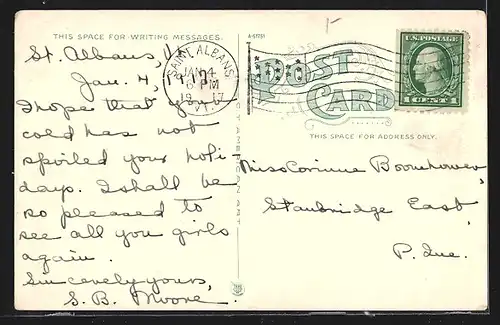 THIS SPACE FOR WRITING MESSAGES.
A-61751
St. Albans, Vt.
Jan. 4,
I hope that your
cold has not
spoiled your holi
days. I shall be
so pleased to
see all you girls
again.
Sincerely yours,
S. B. Moore.
SAINT ALBANS
JAN 4
6 PM
1917
POST
CARD
THIS SPACE FOR ADDRESS ONLY.
U.S. POSTAGE
1 CENT 1
Miss Corinne Boomhower,
Stanbridge East,
P. Que.